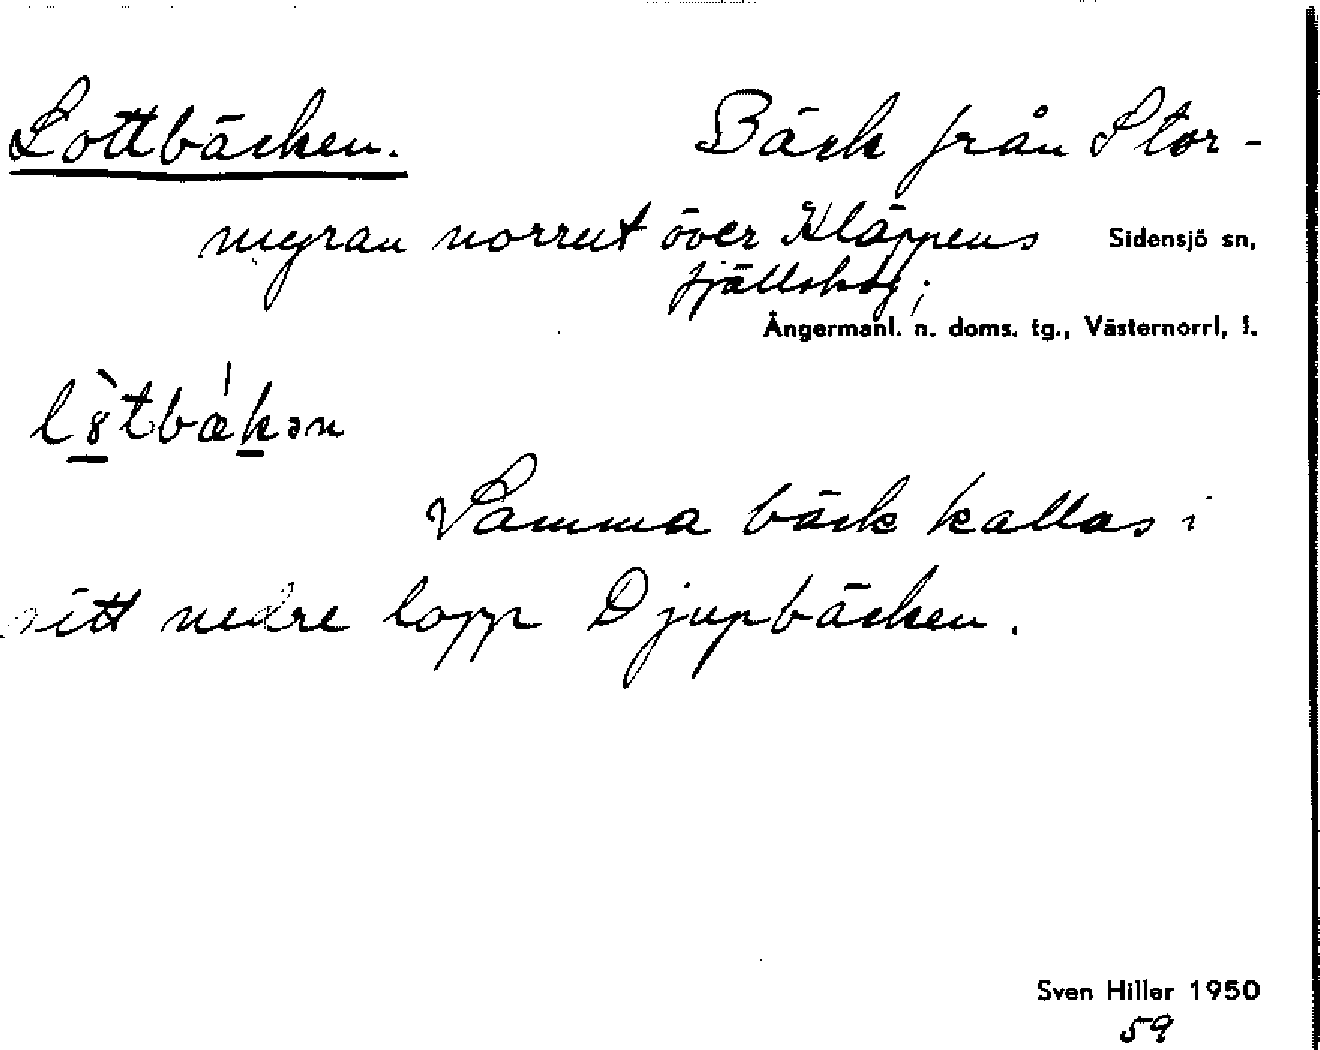 Lottbäcken. Bäck från Stor-
myran norrut över Kläppens Sidensjö sn,
fjällskog;
Ångermanl. n. doms. tg., Västernorrl, l.
Samma bäck kallas i
sitt nedre lopp Djupbäcken.
Sven Hiller 1950
59